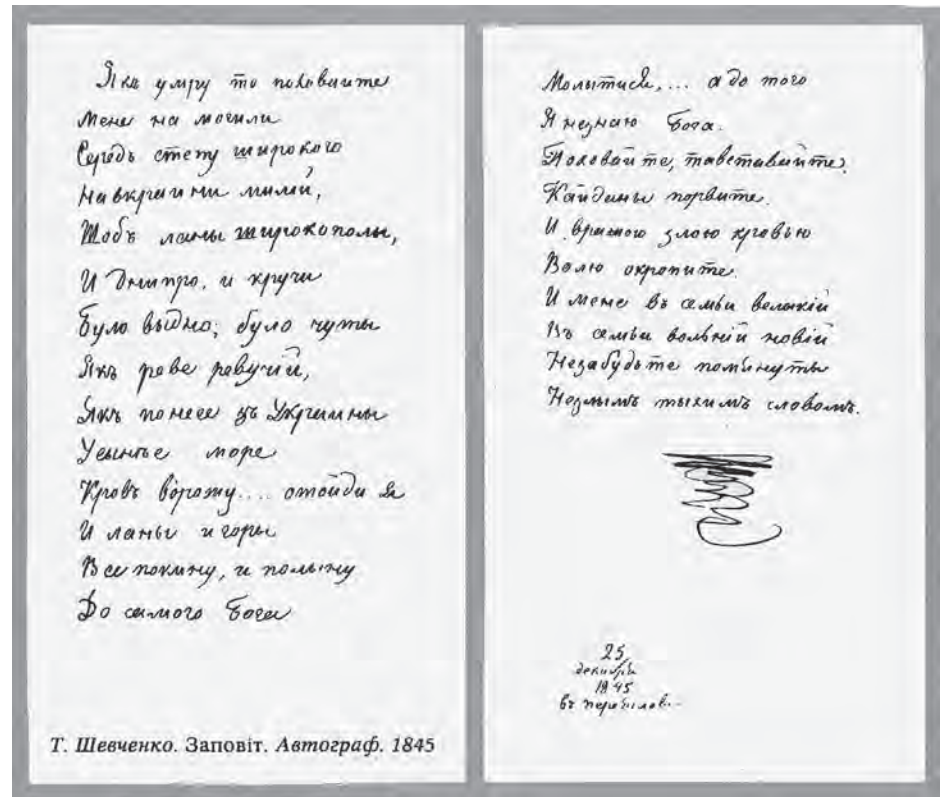 Якъ умру то поховайте
Мене на могили
Середъ степу широкого
На вкраини милій,
Щобъ ланы широкополы,
И Днипро, и кручи
Було выдно; було чуты
Якъ реве ревучій,
Якъ понесе зъ Украины
Усынѣе море
Кровъ ворожу.... отойди я
И ланы и горы
Все покину, и полыну
До самого Бога
Молытися,... а до того
Я незнаю Бога.
Поховайте, тавставайте,
Кайданы порвите.
И вражою злою кровью
Волю окропите.
И мене въ семьи великій
Въ семьи вольній новій
Незабудьте помянуты
Незлымъ тыхимъ словомъ.
25
декабря
1845
въ
Т. Шевченко. Заповіт. Автограф. 1845